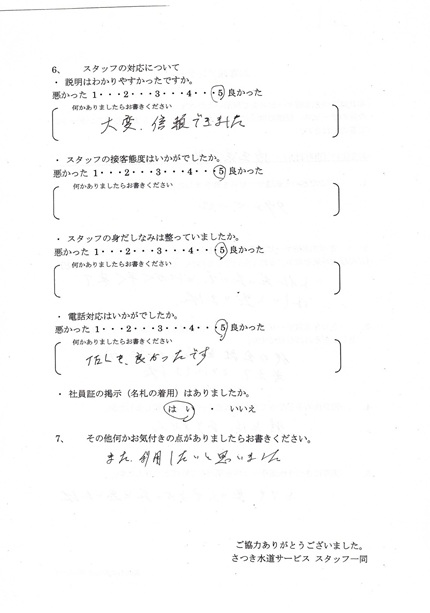 6、 スタッフの対応について
・ 説明はわかりやすかったですか。
悪かった 1・・・2・・・3・・・4・・・5 良かった
何かありましたらお書きください
大変、信頼できました
・ スタッフの接客態度はいかがでしたか。
悪かった 1・・・2・・・3・・・4・・・5 良かった
何かありましたらお書きください
・ スタッフの身だしなみは整っていましたか。
悪かった 1・・・2・・・3・・・4・・・5 良かった
何かありましたらお書きください
・ 電話対応はいかがでしたか。
悪かった 1・・・2・・・3・・・4・・・5 良かった
何かありましたらお書きください
良かったです
・ 社員証の掲示（名札の着用）はありましたか。
はい ・ いいえ
7、 その他何かお気付きの点がありましたらお書きください。
また、利用したいと思いました
ご協力ありがとうございました。
さつき水道サービス スタッフ一同